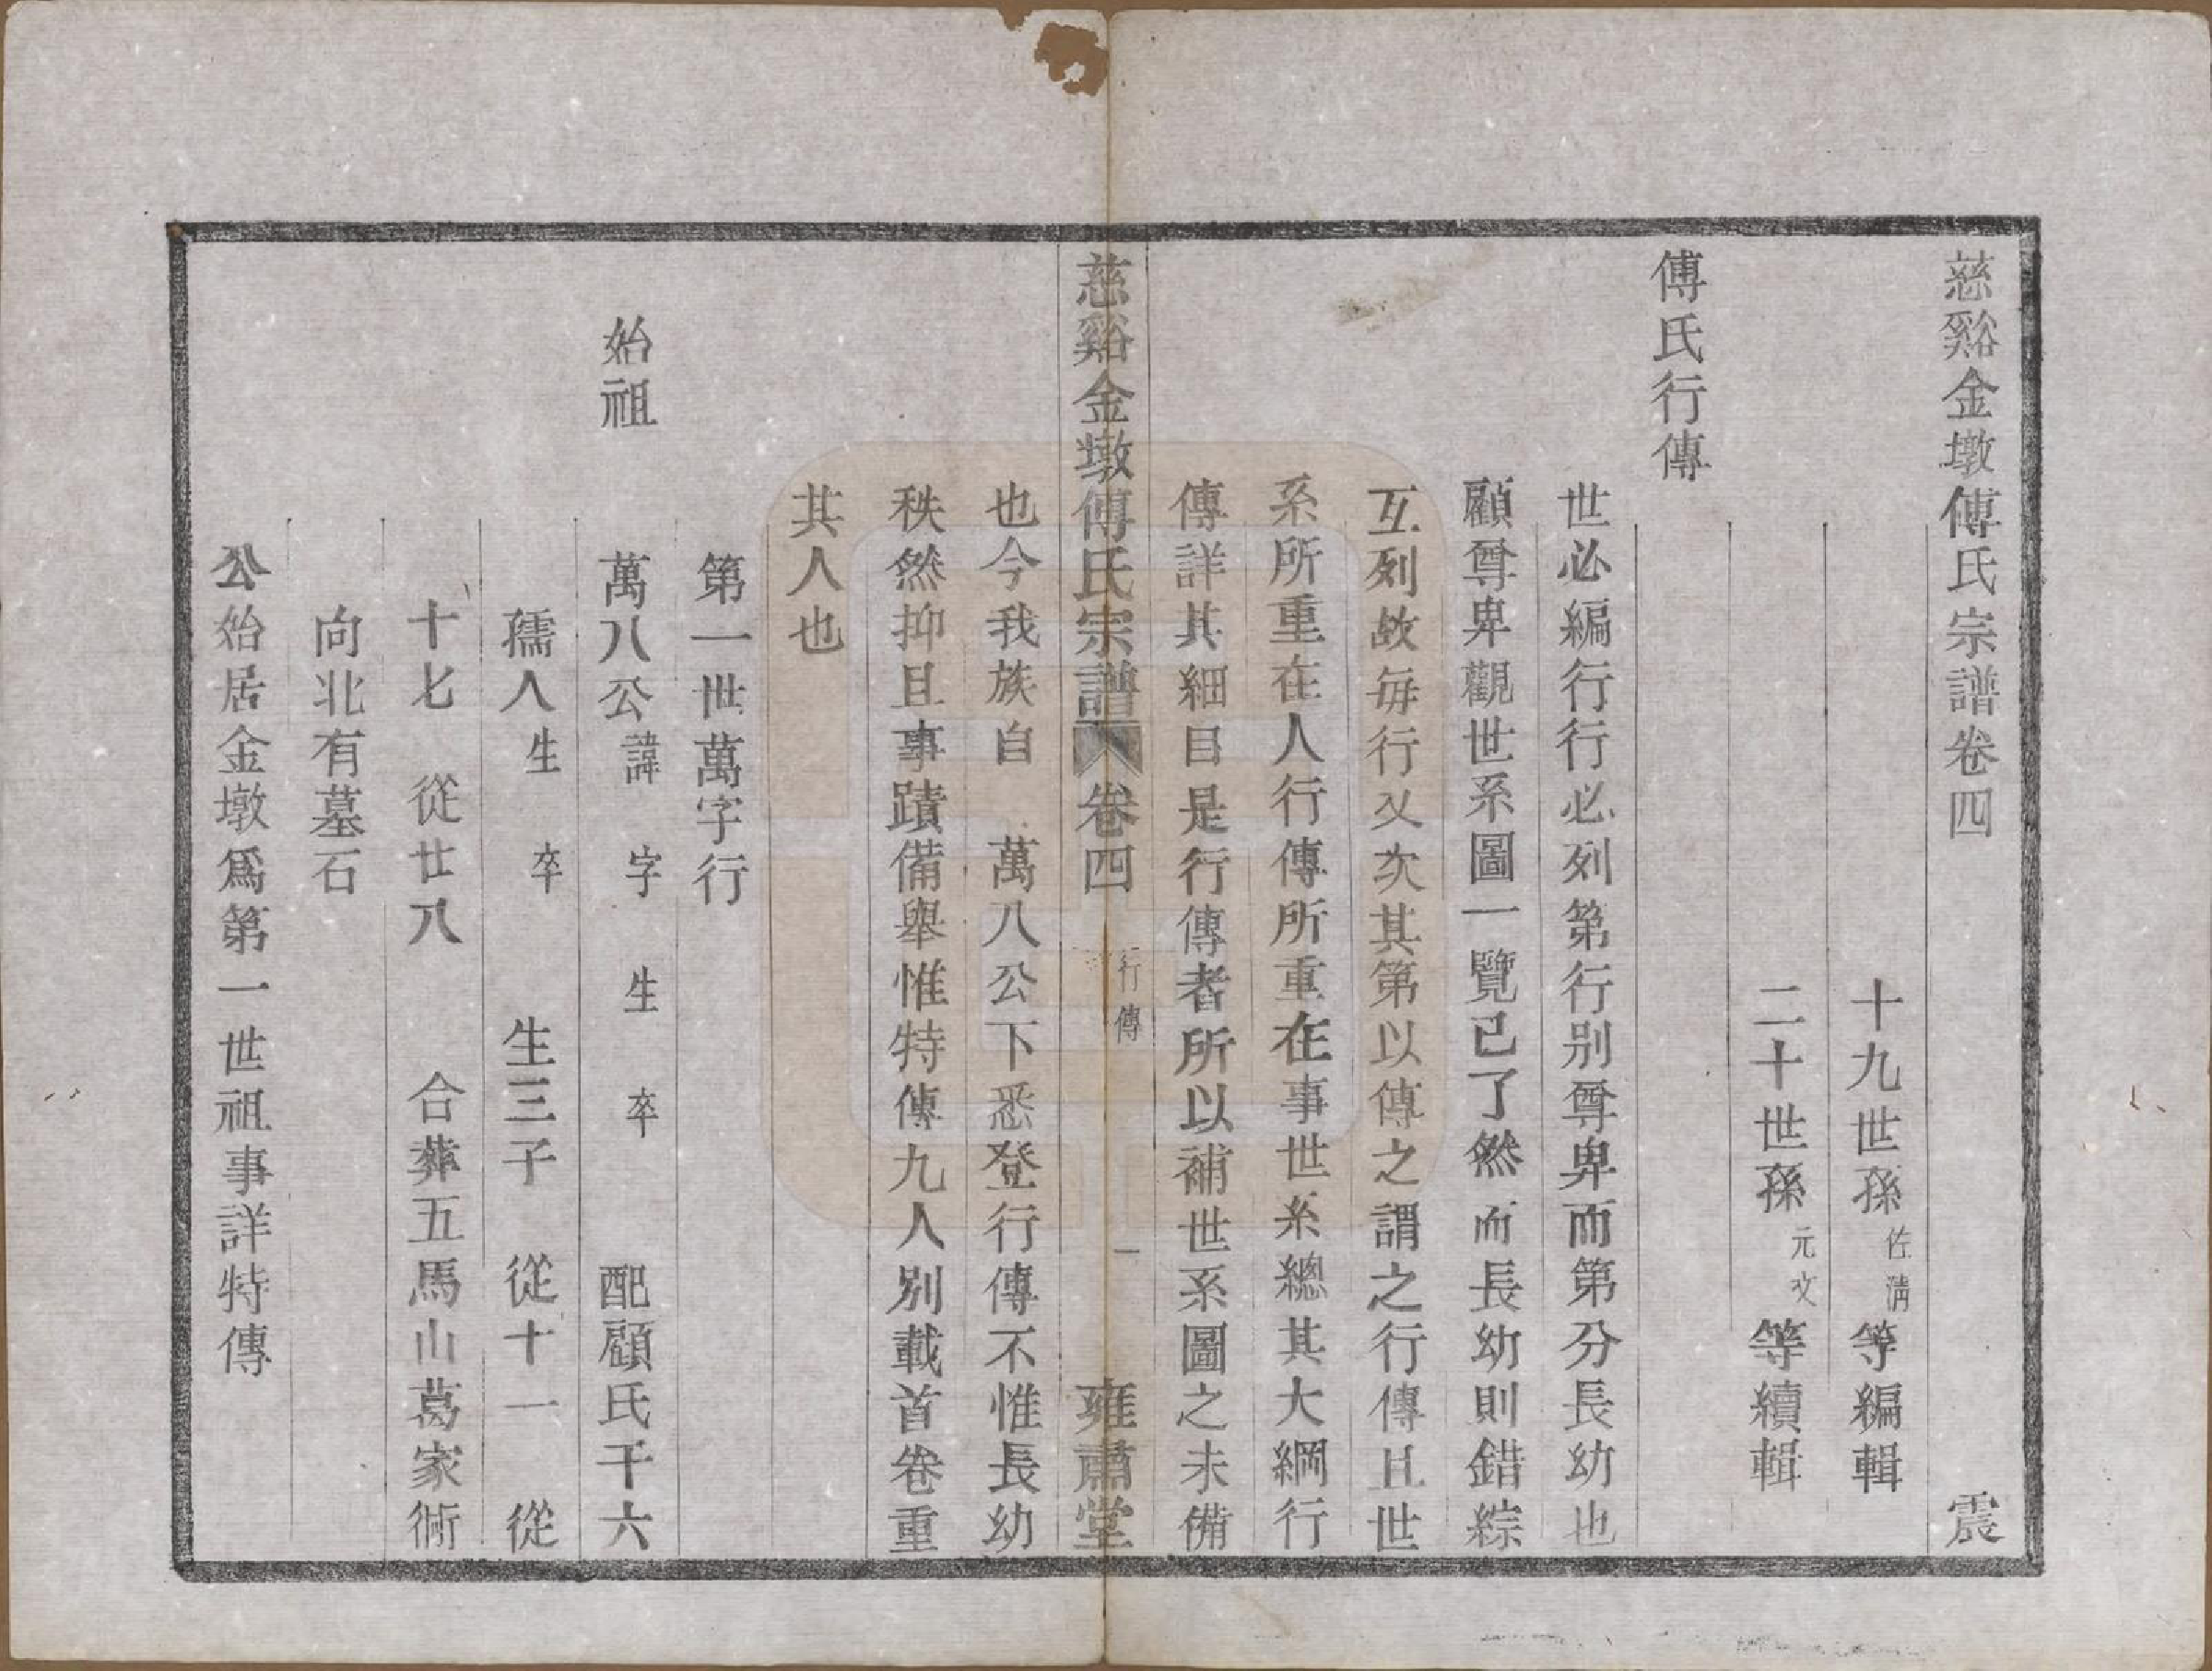 慈谿金墩傅氏宗譜卷四　震
十九世孫佐清等編輯
二十世孫元文等續輯
傅氏行傳
世必編行行必列第行別尊卑而第分長幼也
顧尊卑觀世系圖一覽已了然而長幼則錯綜
互列故每行又次其第以傳之謂之行傳且世
系所重在人行傳所重在事世系總其大綱行
傳詳其細目是行傳者所以補世系圖之未備
慈谿金墩傅氏宗譜　卷四　行傳　一　雍肅堂
也今我族自　萬八公下悉登行傳不惟長幼
秩然抑且事蹟備舉惟特傳九人別載首卷重
其人也
第一世萬字行
始祖　萬八公諱　字　生　卒　配顧氏千六
孺人生　卒　生三子　從十一　從
十七　從廿八　合葬五馬山葛家衕
向北有墓石
公始居金墩爲第一世祖事詳特傳